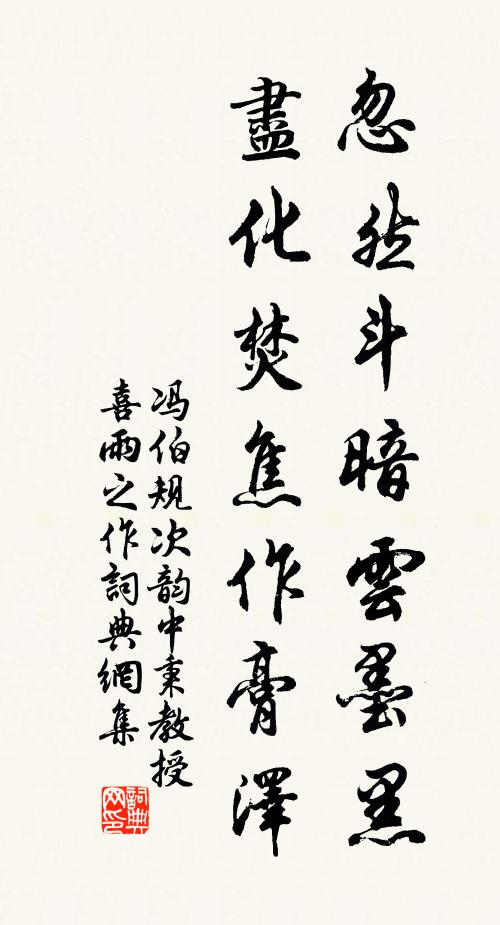 忽然斗暗雲墨黑
盡化焚焦作膏澤
冯伯規次韵中秉教授
喜雨之作詞典網集
詞典网印